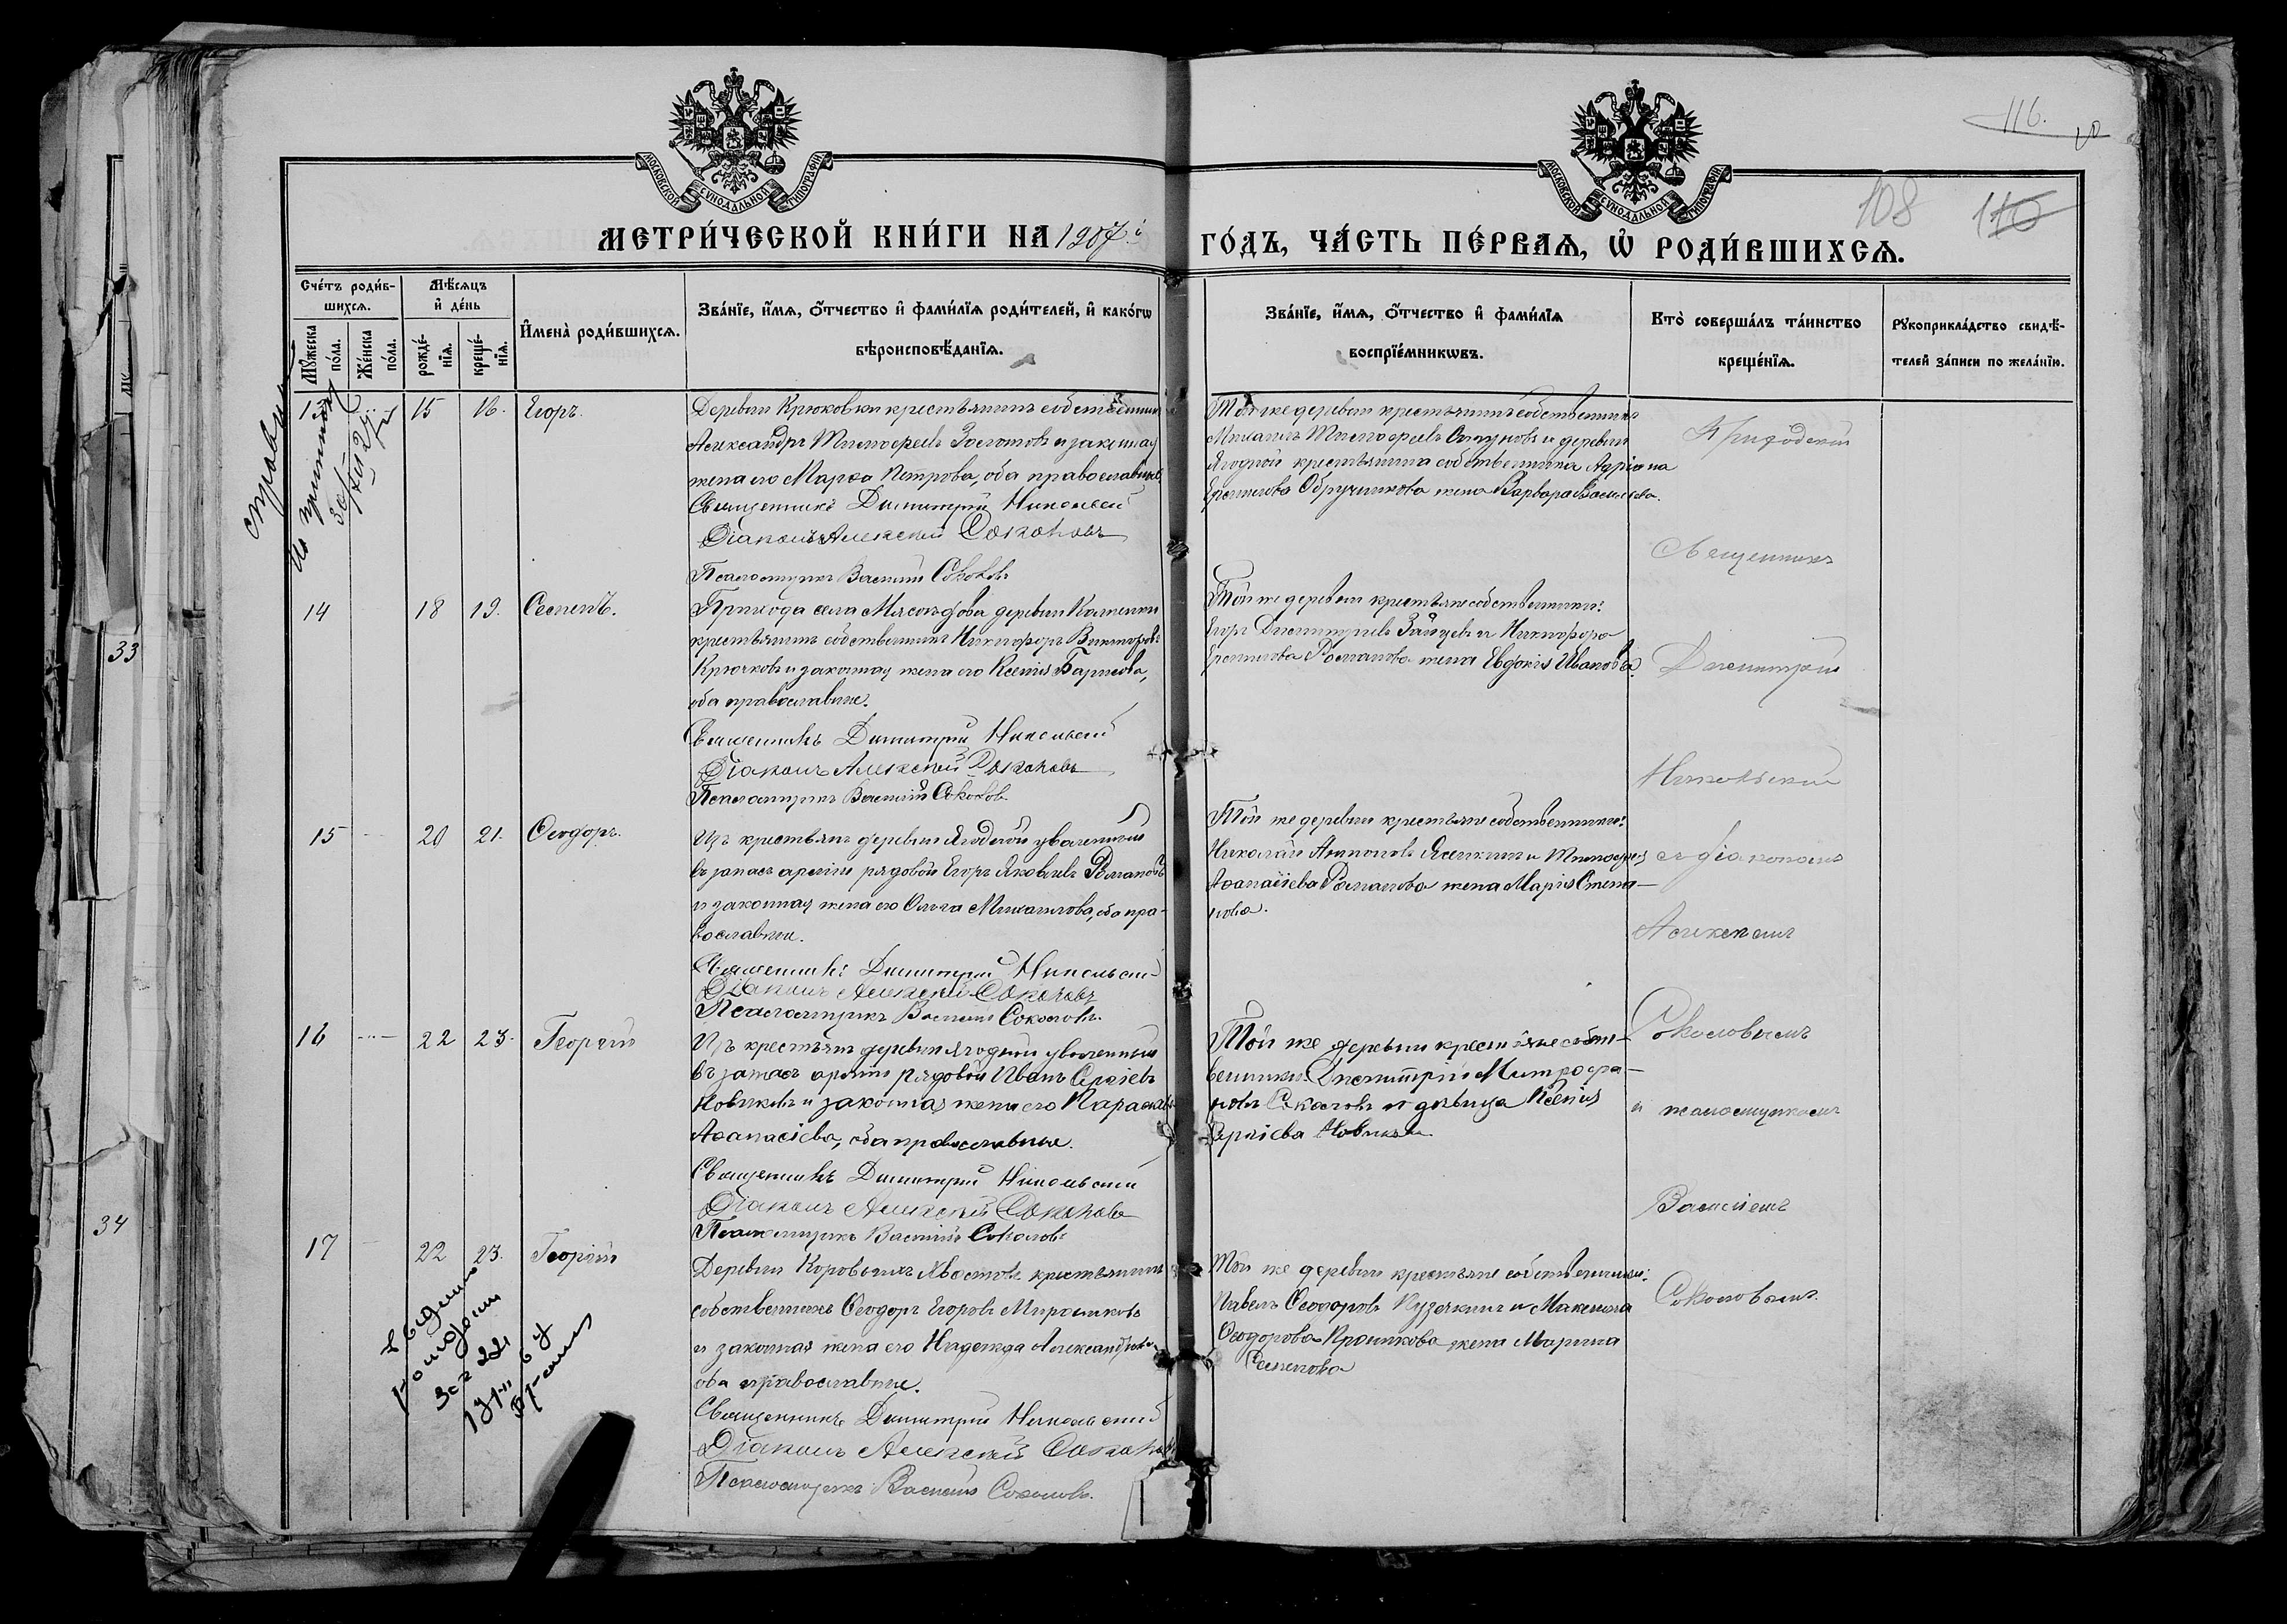 116.
108
110
МОСКОВСКОЙ СѴНОДАЛЬНОЙ ТИПОГРАФІИ
МОСКОВСКОЙ СѴНОДАЛЬНОЙ ТИПОГРАФІИ
МЕТРИ́ЧЕСКОЙ КНИ́ГИ НА 1907й
ГО́ДЪ, ЧА́СТЬ ПЕ́РВАѦ, Ѡ҆ РОДИ́ВШИХСѦ.
Сче́тъ роди́в-
шихсѧ.
Мѣ́сѧцъ
и҆ де́нь
Мꙋ́жеска по́ла.
Же́нска по́ла.
рожде́-
нїѧ.
креще́-
нїѧ.
И҆мена̀ роди́вшихсѧ.
Зва́нїе, и҆́мѧ, ѻ҆́тчество и҆ фами́лїѧ роди́телей, и҆ како́гѡ
вѣроисповѣ́данїѧ.
Зва́нїе, и҆́мѧ, ѻ҆́тчество и҆ фами́лїѧ
воспрїе́мникѡвъ.
Кто̀ соверша́лъ та́инство
креще́нїѧ.
Рꙋкоприкла́дство свидѣ́-
телей за́писи по жела́нїю.
13 15 16. Егоръ.
Деревни Крюковки крестьянинъ собственникъ
Александръ Тимофеевъ Золотовъ и законная
жена его Марѳа Петрова, оба православные
Священникъ Димитрій Никольскій
Діаконъ Алексѣй Соколовъ
Псаломщикъ Василій Соколовъ
Той же деревни крестьянинъ собственникъ
Михаилъ Тимофеевъ и деревни
Ягодной крестьянина собственника Адріана
Обручникова жена Варвара Васильева.
14 18 19. Семенъ.
Прихода села Мясоѣдова деревни Каменки
крестьянинъ собственникъ Никифоръ Викторовъ
Крючковъ и законная жена его Ксенія Борисова,
оба православные.
Священникъ Димитрій Никольскій
Діаконъ Алексѣй Соколовъ
Псаломщикъ Василій Соколовъ
Той же деревни крестьяне собственники:
Егоръ Димитріевъ Зайцевъ и Никифора
Романова жена Евдокія Иванова.
15 20 21. Ѳеодоръ.
Изъ крестьянъ деревни Ягодной уволенный
въ запасъ арміи рядовой Егоръ Яковлевъ Романовъ
и законная жена его Ольга Михаилова, оба пра-
вославные.
Священникъ Димитрій Никольскій
Діаконъ Алексѣй Соколовъ
Псаломщикъ Василій Соколовъ.
Той же деревни крестьяне собственники:
Николай Антоновъ и Тимофея
Аѳанасіева Романова жена Марія Степа-
нова.
16 22 23. Георгій
Изъ крестьянъ деревни Ягодной уволенный
въ запасъ арміи рядовой Иванъ Сергіевъ
Новиковъ и законная жена его Параскева
Аѳанасіева, оба православные.
Священникъ Димитрій Никольскій
Діаконъ Алексѣй Соколовъ
Псаломщикъ Василій Соколовъ
Той же деревни крестьяне собст-
венники: Димитрій Митрофа-
новъ и дѣвица Ксенія
Сергіева Новикова.
17 22 23. Георгій
Деревни Коровьихъ Хвостовъ крестьянинъ
собственникъ Ѳеодоръ Егоровъ Мирошниковъ
и законная жена его Надежда Александрова
оба православные.
Священникъ Димитрій Никольскій
Діаконъ Алексѣй Соколовъ
Псаломщикъ Василій Соколовъ.
Той же деревни крестьяне собственники:
Павелъ Ѳеодоровъ Кузечкинъ и Максима
Ѳеодорова жена Марина
Семенова
Приходскій
Священникъ
Димитрій
Никольскій
съ діакономъ
Алексѣемъ
Соколовымъ
и псаломщикомъ
Василіемъ
Соколовымъ.
33
34